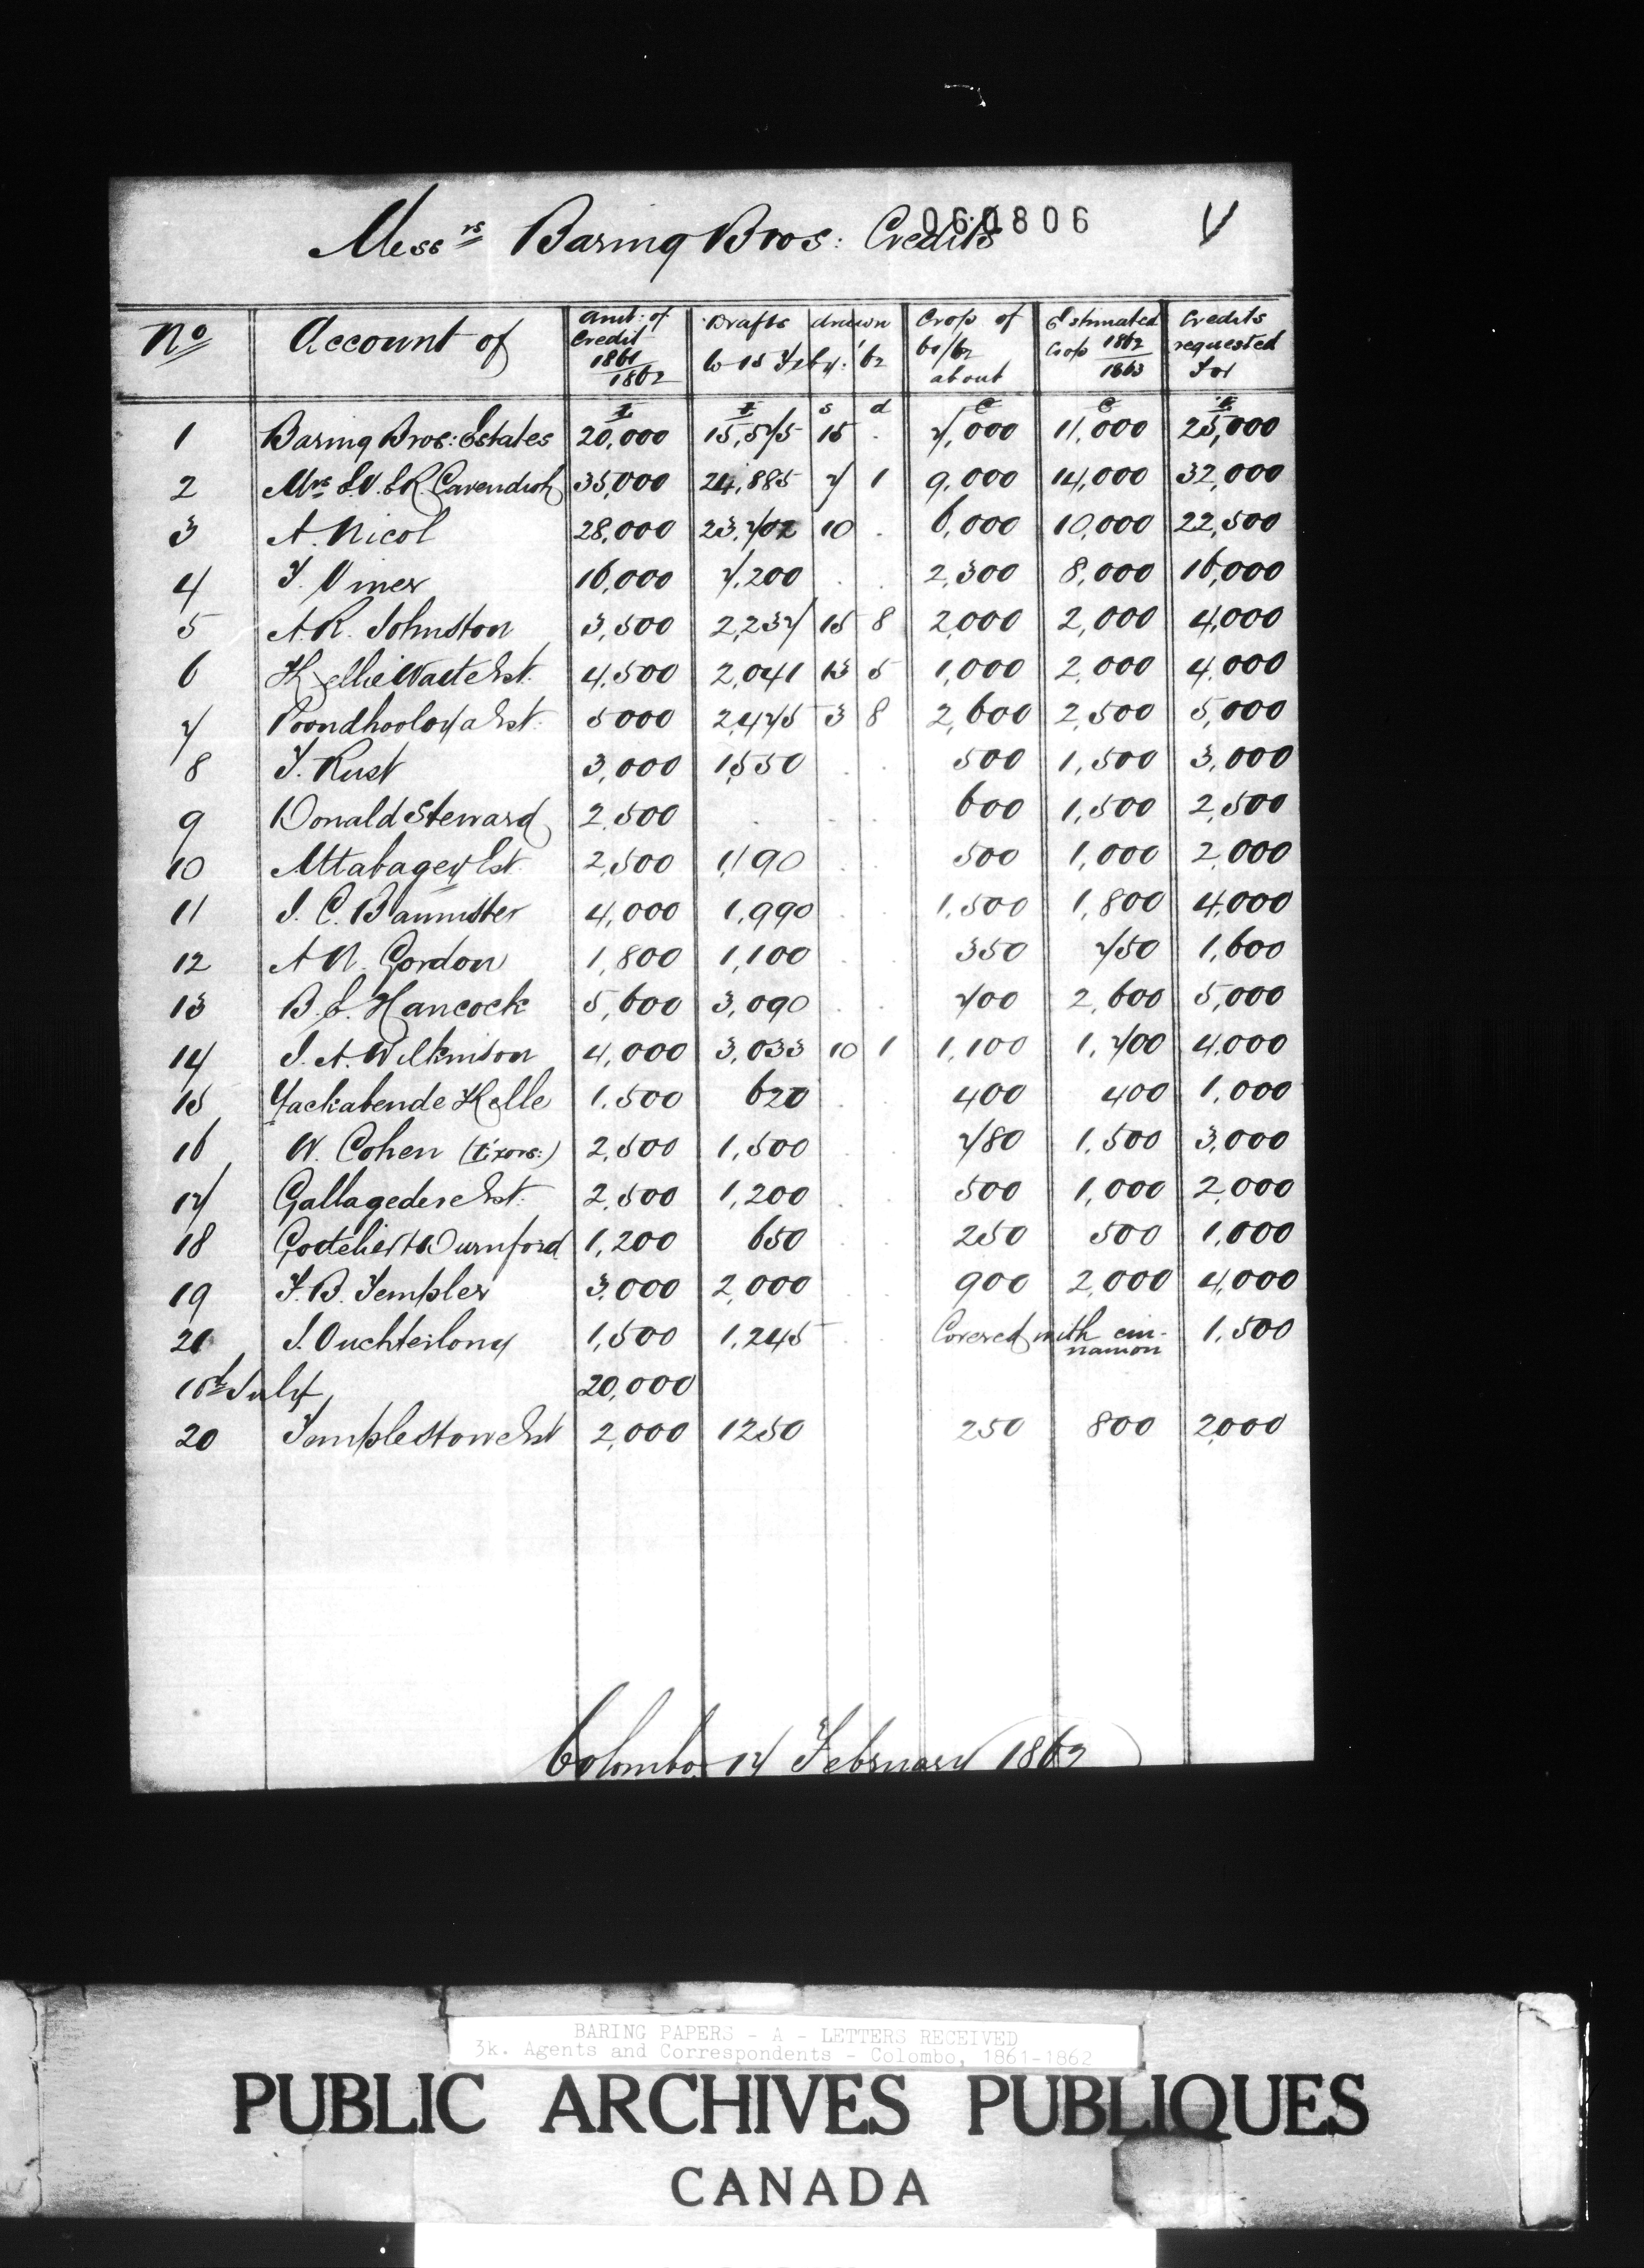 060806
Messrs Baring Bros: Credits
No Account of Amt: of Credit 1861/1862 Drafts drawn to 15 Feby: '62 Crop of 61/62 about Estimated Crop 1862/1863 Credits requested for
£ £ s d C C £
1 Baring Bros: Estates 20,000 15,575 15 . 7,000 11,000 25,000
2 Mrs E.N. & R. Cavendish 35,000 24,885 7 1 9,000 14,000 32,000
3 A. Nicol 28,000 23,702 10 . 6,000 10,000 22,500
4 F. Viner 16,000 7,200 . . 2,300 8,000 16,000
5 A.R. Johnston 3,500 2,237 15 8 2,000 2,000 4,000
6 Kellie Watte Est. 4,500 2,041 13 5 1,000 2,000 4,000
7 Poondhooloya Est. 5000 2,475 3 8 2,600 2,500 5,000
8 F. Rust 3,000 1,550 . . 500 1,500 3,000
9 Donald Steward 2,500 . . . 600 1,500 2,500
10 Attabagey Est. 2,500 1,190 . . 500 1,000 2,000
11 J. C. Bannister 4,000 1,990 . . 1,500 1,800 4,000
12 A N. Gordon 1,800 1,100 . . 350 750 1,600
13 B. E. Hancock 5,600 3,090 . . 700 2,600 5,000
14 J. A. Wilkinson 4,000 3,033 10 1 1,100 1,700 4,000
15 Yackabende Kelle 1.500 620 . . 400 400 1,000
16 N. Cohen (Exors:) 2,500 1,500 . . 780 1,500 3,000
17 Gallagedere Est. 2,500 1,200 . . 500 1,000 2,000
18 Durnford 1,200 650 . . 250 500 1,000
19 F. B. Templer 3,000 2,000 . . 900 2,000 4,000
20 J. Ouchterlony 1,500 1,245 . . Covered with cin-namon 1,500
15th July 20,000
20 Templestowe Est 2,000 1250 250 800 2,000
Colombo, 17 February 1862
BARING PAPERS - A - LETTERS RECEIVED
3k. Agents and Correspondents - Colombo, 1861-1862
PUBLIC ARCHIVES PUBLIQUES
CANADA